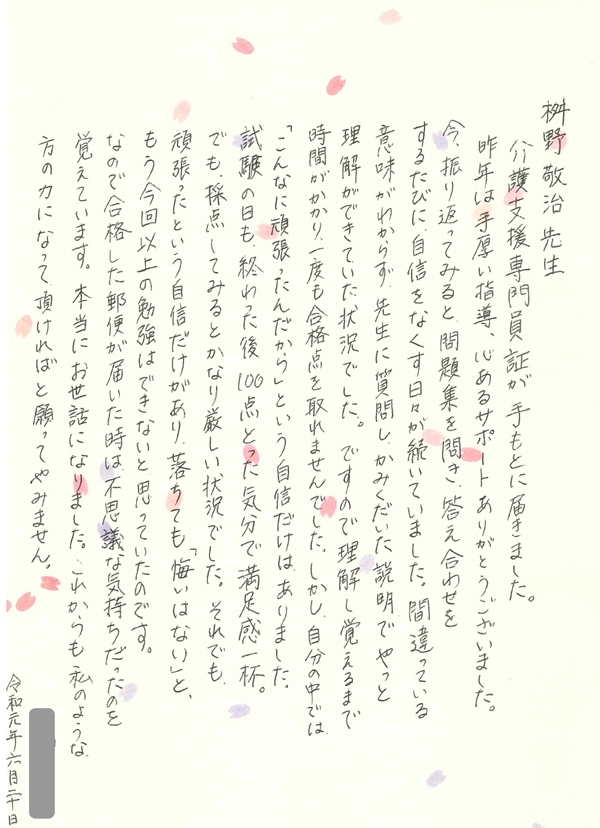 桝野敬治先生
介護支援専門員証が手もとに届きました。
昨年は手厚い指導、心あるサポートありがとうございました。
今、振り返ってみると、問題集を開き、答え合わせを
するたびに、自信をなくす日々が続いていました。間違っている
意味がわからず、先生に質問し、かみくだいた説明でやっと
理解ができていた状況でした。ですので理解し覚えるまで
時間がかかり、一度も合格点を取れませんでした。しかし、自分の中では
「こんなに頑張ったんだから」という自信だけは、ありました。
試験の日も、終わった後、100点とった気分で満足感一杯。
でも、採点してみるとかなり厳しい状況でした。それでも、
頑張ったという自信だけがあり、落ちても「悔いはない」と、
もう今回以上の勉強はできないと思っていたのです。
なので合格した郵便が届いた時は、不思議な気持ちだったのを
覚えています。本当にお世話になりました。これからも私のような
方の力になって頂ければと願ってやみません。
令和元年六月二十日